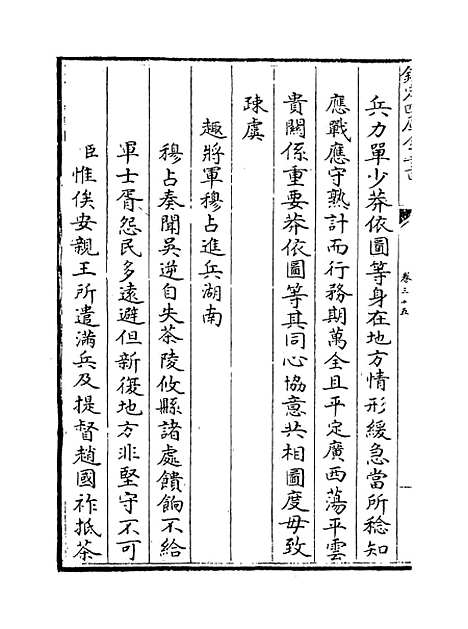 欽定四庫全書
卷三十五
兵力單少莽依圖等身在地方情形緩急當所稔知
應戰應守熟計而行務期萬全且平定廣西蕩平雲
貴關係重要莽依圖等其同心協意共相圖度毋致
疎虞
趣將軍穆占進兵湖南
穆占奏聞吳逆自失茶陵攸縣諸處饋餉不給
軍士胥怨民多遠避但新復地方非堅守不可
臣惟俟安親王所遣滿兵及提督趙國祚抵茶